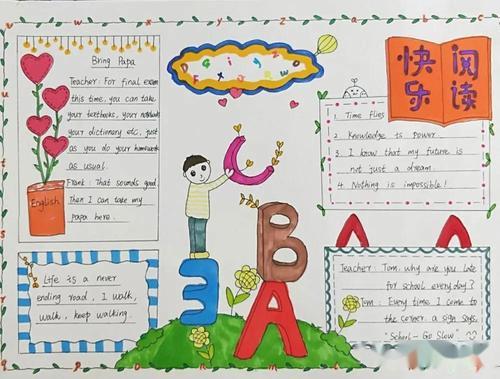 Bring Papa
Teacher: For final exam
this time, you can take
your textbooks, your notebooks
your dictionary etc, just
as you do your homework
as usual.
Frank: That sounds good.
Then I can take my
papa here.
English
Life is a never
ending road, I walk,
walk, keep walking.
C
B
A
3
快乐
阅读
1. Time flies
2. Knowledge is power.
3. I know that my future is
not just a dream.
4. Nothing is impossible!
Teacher: Tom, why are you late
for school everyday?
Tom: Every time I come to
the corner, a sign says,
"School - Go Slow"